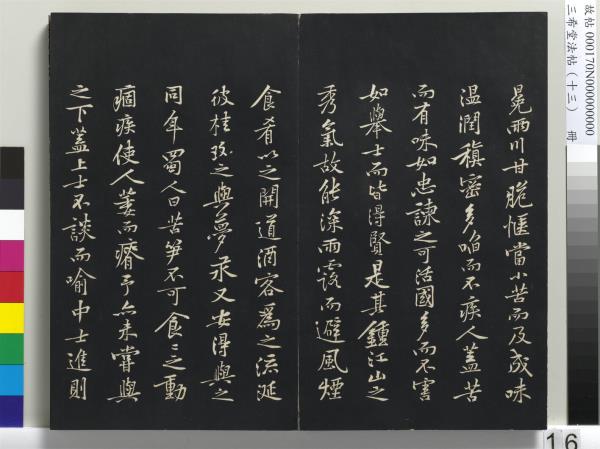 故帖 000170N000000000
三希堂法帖（十三） 冊
冕兩川甘脆愜當小苦而及成味
温潤稹密多啗而不疾人蓋苦
而有味如忠諫之可活國多而不害
如舉士而皆得賢是其鍾江山之
秀氣故能深雨露而避風煙
食肴以之開道酒客爲之流涎
彼桂玫之與夢汞又安得與之
同年蜀人曰苦笋不可食〻之動
痼疾使人萎而瘠予亦未嘗與
之下蓋上士不談而喻中士進則
16